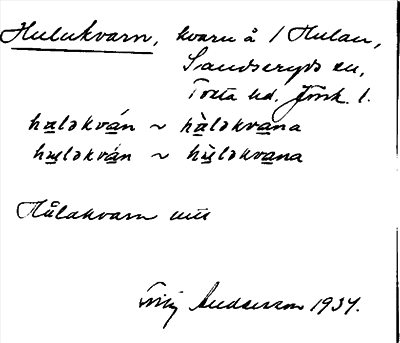 Hulukvarn, kvarn å 1 Hulan,
Sandseryds sn,
Tveta hd. Jönk. l.
haləkván ~ hàləkvana
huləkván ~ hùləkvana
Hålakvarn
Andersson 1934.